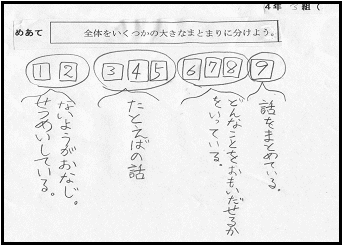 4年 3組(
めあて
全体をいくつかの大きなまとまりに分けよう。
1 2 3 4 5 6 7 8 9
ないようがおなじ。
せつめいしている。
たとえばの話
どんなことをおもいだせるか
をいっている。
話をまとめている。